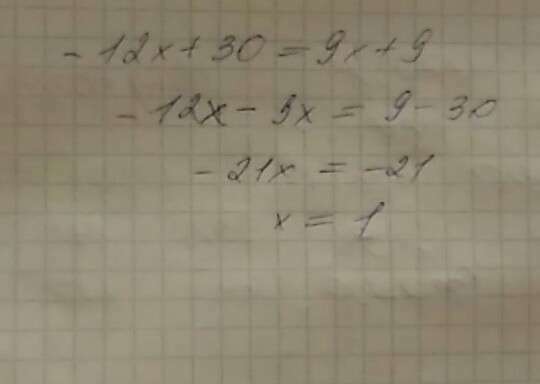 - 12x + 30 = 9x + 9
- 12x - 9x = 9 - 30
- 21x = -21
x = 1